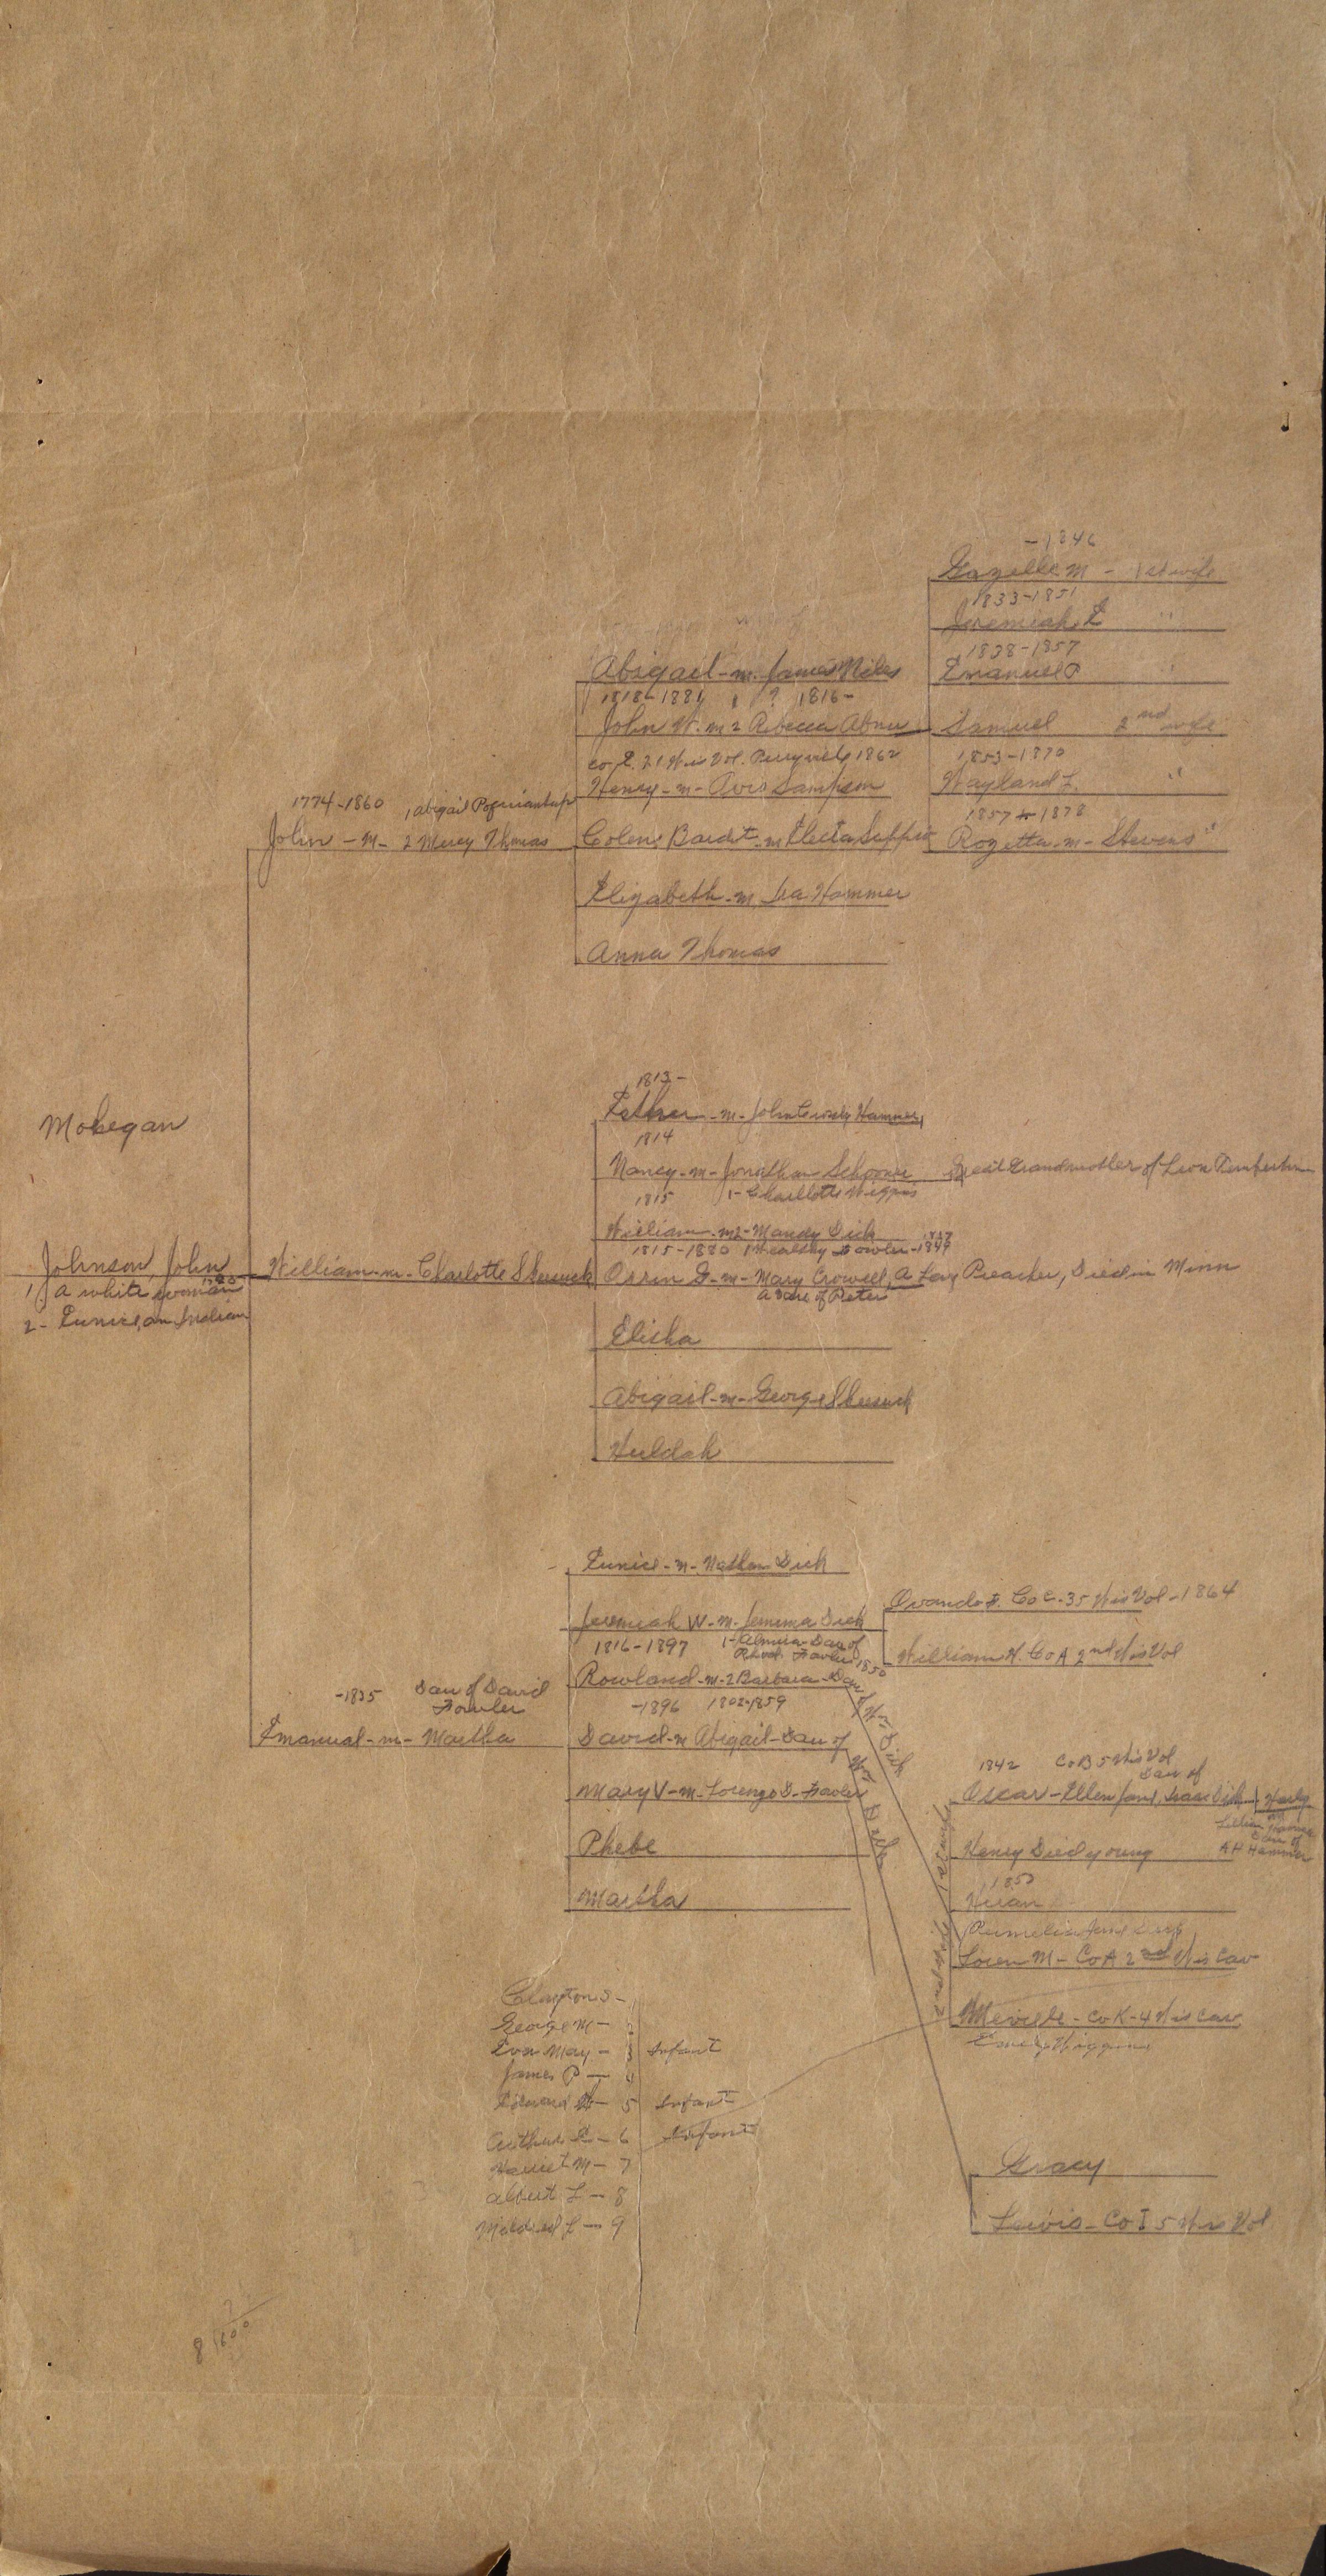 Mohegan
Johnson, John
1. A white woman
2 - Eunice, an Indian
1774-1860
1 Abigail
John - m - 2 Mercy Thomas
Abigail - m. James Niles
1818-1881 ? 1816-
John W. m 2 Rebecca Abner
Co. E. 21 Wis Vol. Perryville 1862
Henry - m - Avis Sampson
- m Electa
Elizabeth - m Ira Hammer
Anna Thomas
-1846
Gazelle M - 1st wife
1833-1851
Jeremiah E "
1838-1857
Emanuel P "
Samuel 2nd wife
1853-1870
Wayland L. "
1857 1878
Rozetta - m - Stevens "
William - m - Charlotte Skeesuck
1813-
Esther - m - John Hammer
1814
Nancy - m - Jonathan Schooner Great Grandmother of Leon
1815 1 - Charllotte Wiggins
William - m 2 - Mandy Dick
1815-1880 1 Fowler - 1849
Orrin G - m - Mary Crowell, A Lay Preacher, Died in Minn
a Dau of Peter
Elisha
Abigail - m - George Skeesuck
Huldah
-1835 Dau of David
Fowler
Emanual - m - Martha
Eunice - m - Nathan Dick
Jeremiah W - m - Jemima Dick
1816-1897 1 - Almira - Dau of
Fowler 1850
Rowland - m - 2 Barbara - Dau of Wm Dick
-1896 1802-1859
David - m Abigail - Dau of Wm Dick
Mary V - m - Lorenzo D - Fowler
Phebe
Martha
Orando F. Co C - 35 Wis Vol - 1864
William H. Co A 2nd Wis Vol
1st wife
2nd wife
1842 Co B 5 Wis Vol
Dau of
Oscar - Ellen Jane, Isaac Dick
Lillian
Dau of
A H Hammer
Henry Died young
1850
Hiran
Loren M - Co A 2nd Wis Cav
Co K - 4 Wis Cav
Emely Wiggins
Gracy
Lewis - Co I 5 Wis Vol
Clayton S - 1
George M - 2
Eva May - 3 Infant
James P - 4
Edward - 5 Infant
Arthur - 6 Infant
Harriet M - 7
Albert L - 8
Mildred L - 9